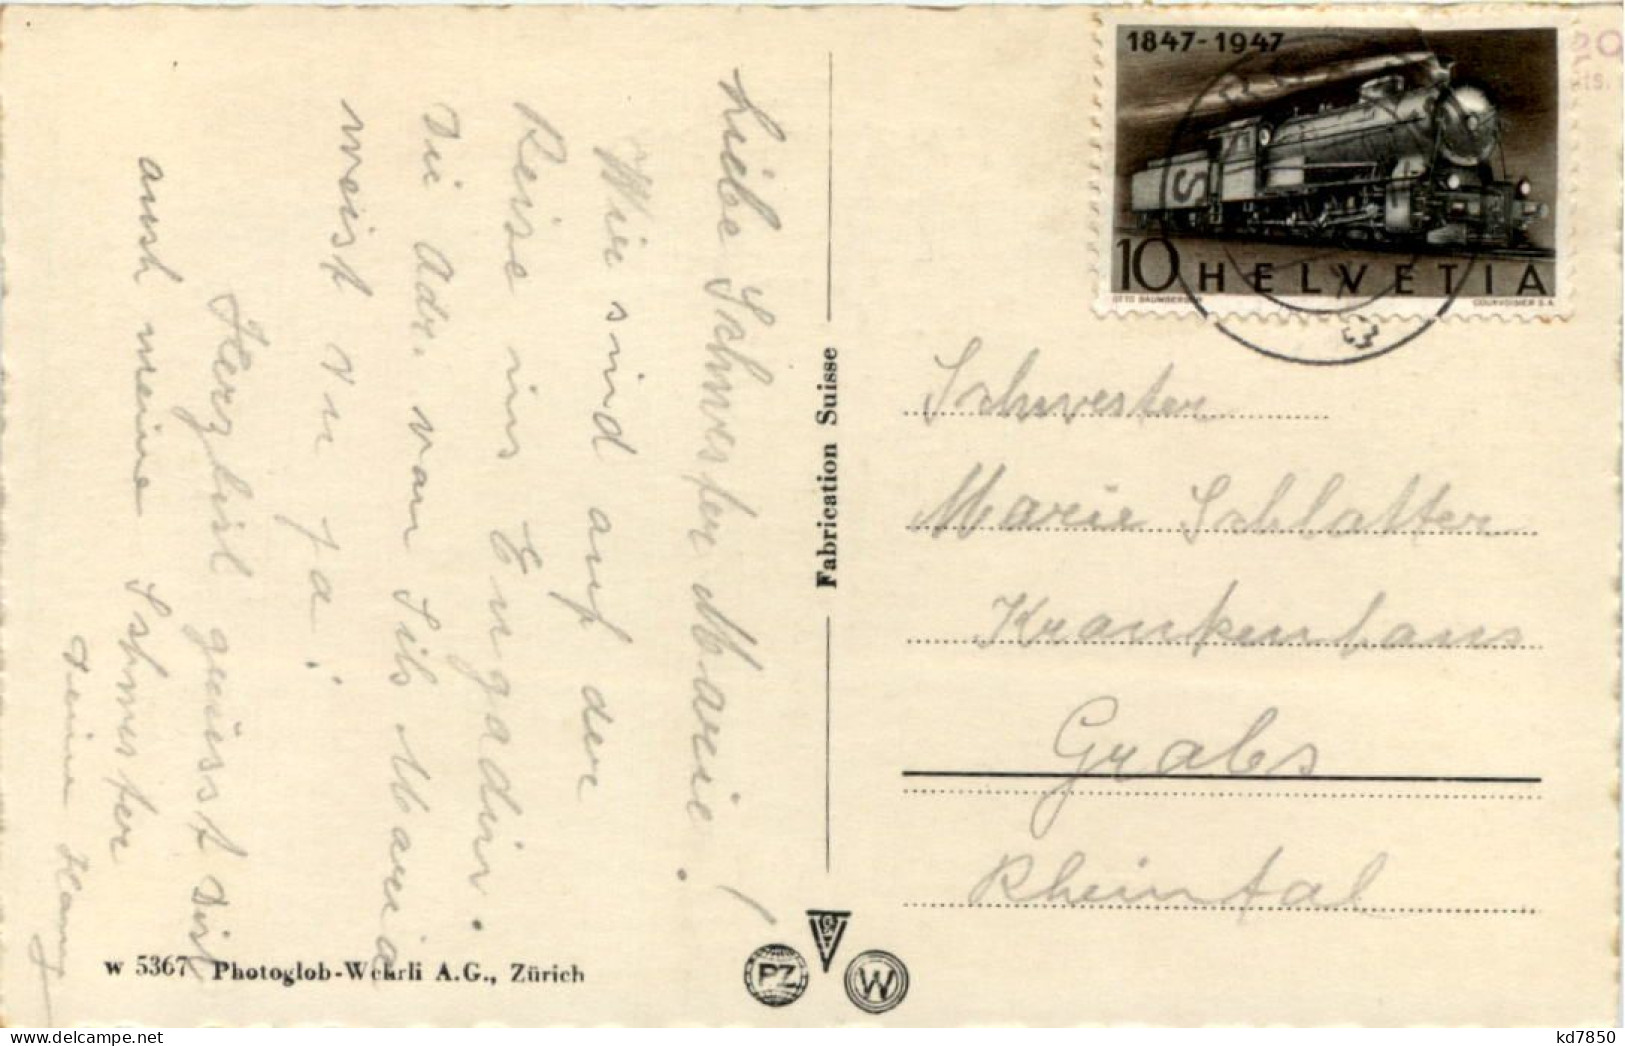 Liebe Schwester Marie!
Wir sind auf der
Reise ins Engadin.
Die Adr. von Sils Maria
weist du ja!
Herzlich grüsst Dich
auch meine Schwester
Deine
1847-1947
10 HELVETIA
OTTO BAUMBERGER
COURVOISIER S.A.
20
cts.
Fabrication Suisse
Schwester
Marie Schlatter
Krankenhaus
Grabs
Rheintal
W 5367 Photoglob-Wehrli A.G., Zürich
PZ
W
kd7850